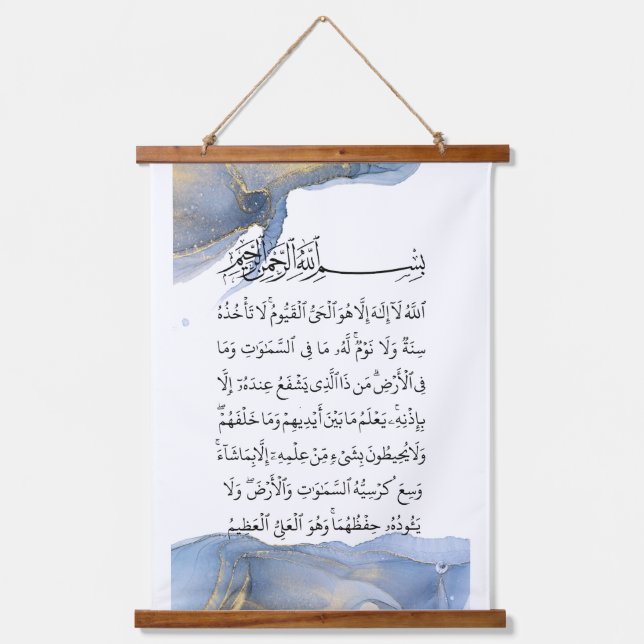 بِسْمِ ٱللَّهِ ٱلرَّحْمَٰنِ ٱلرَّحِيمِ
ٱللَّهُ لَآ إِلَٰهَ إِلَّا هُوَ ٱلْحَىُّ ٱلْقَيُّومُ ۚ لَا تَأْخُذُهُۥ
سِنَةٌ وَلَا نَوْمٌ ۚ لَّهُۥ مَا فِى ٱلسَّمَٰوَٰتِ وَمَا
فِى ٱلْأَرْضِ ۗ مَن ذَا ٱلَّذِى يَشْفَعُ عِندَهُۥٓ إِلَّا
بِإِذْنِهِۦ ۚ يَعْلَمُ مَا بَيْنَ أَيْدِيهِمْ وَمَا خَلْفَهُمْ ۖ
وَلَا يُحِيطُونَ بِشَىْءٍ مِّنْ عِلْمِهِۦٓ إِلَّا بِمَا شَآءَ ۚ
وَسِعَ كُرْسِيُّهُ ٱلسَّمَٰوَٰتِ وَٱلْأَرْضَ ۖ وَلَا
يَـُٔودُهُۥ حِفْظُهُمَا ۚ وَهُوَ ٱلْعَلِىُّ ٱلْعَظِيمُ